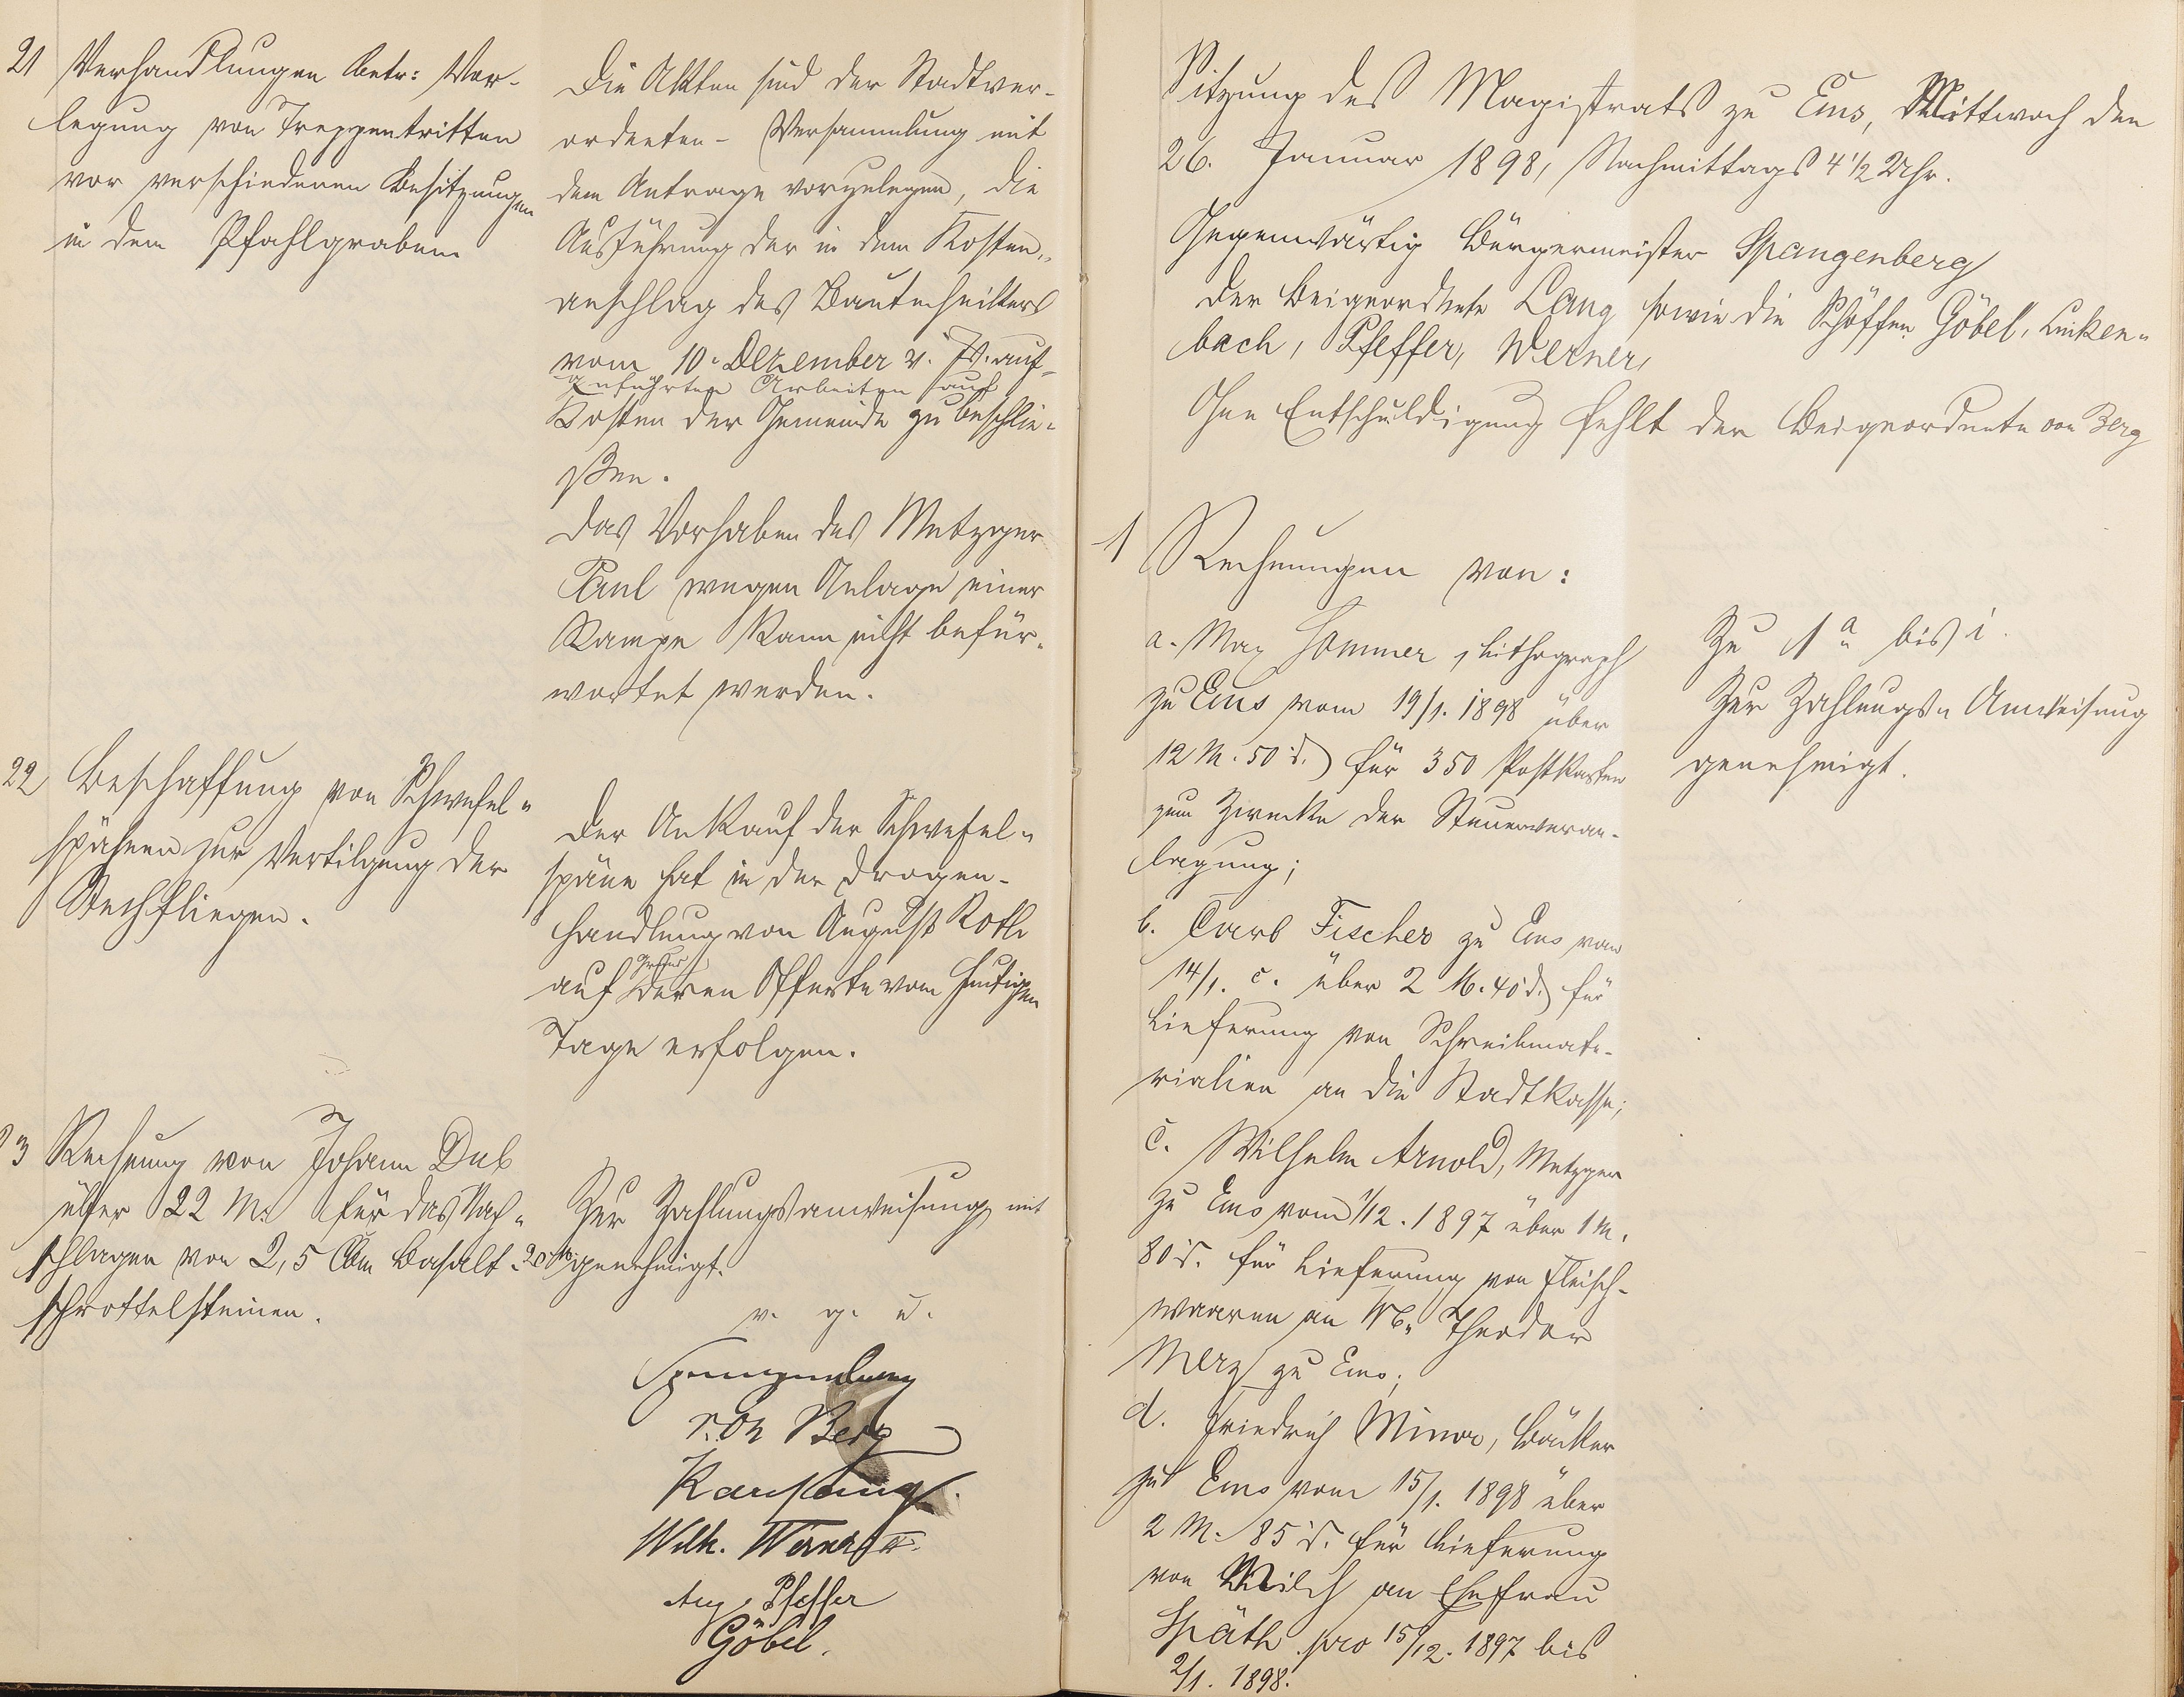 21 Verhandlungen betr: Vor-
legung von Treppentritten
vor verschiedenen Besitzungen
in dem Pfahlgraben
Die Akten sind der Stadtver-
ordneten- Versammlung mit
dem Antrage vorzulegen, die
Ausführung der in dem Kosten-
anschlag des Bautechnikers
vom 10. Dezember v. Js. auf-
geführten Arbeiten auf
Kosten der Gemeinde zu beschlie-
ßen.
Das Vorhaben des Metzger
Paul wegen Anlage einer
Rampe kann nicht befür-
wortet werden.
22 Beschaffung von Schwefel-
spähnen zur Vertilgung der
Stechfliegen.
Der Ankauf der Schwefel-
späne hat in der Drogen-
handlung von August Roth
auf deren Offerte vom heutigen
Tage erfolgen.
23 Rechnung von Johann Dub
über 22 M. für das Nach-
schlagen von 2,5 Cbm Basalt-
schrottelsteinen.
Zur Zahlungsanweisung mit
20 M. genehmigt.
v. g. u.
Spangenberg
von Berg
Karl Lang
Wilh. Werner II.
Aug. Pfeffer
Göbel.
Sitzung des Magistrats zu Ems, Mittwoch den
26. Januar 1898, Nachmittags 4 1/2 Uhr.
Gegenwärtig Bürgermeister Spangenberg
der Beigeordnete Lang sowie die Schöffen Göbel, Linken-
bach, Pfeffer, Werner,
Ohne Entschuldigung fehlt der Beigeordnete von Berg
1 Rechnungen von:
a. Max Sommer, Lithograph
zu Ems vom 19/1. 1898 über
12 M. 50 d. für 350 Postkarten
zum Zwecke der Steuerveran-
lagung;
Zu 1 a bis i.
Zur Zahlungs-Anweisung
genehmigt.
b. Carl Fischer zu Ems vom
14/1. c. über 2 M. 40 d. für
Lieferung von Schreibmate-
rialien an die Stadtkasse;
c. Wilhelm Arnold, Metzger
zu Ems vom 1/12. 1897 über 1 M.
80 d. für Lieferung von Fleisch-
waaren an Theodor
Merz zu Ems;
d. Friedrich Minor, Bäcker
zu Ems vom 15/1. 1898 über
2 M. 85 d. für Lieferung
von Milch an Ehefrau
Späth pro 15/12. 1897 bis
2/1. 1898.